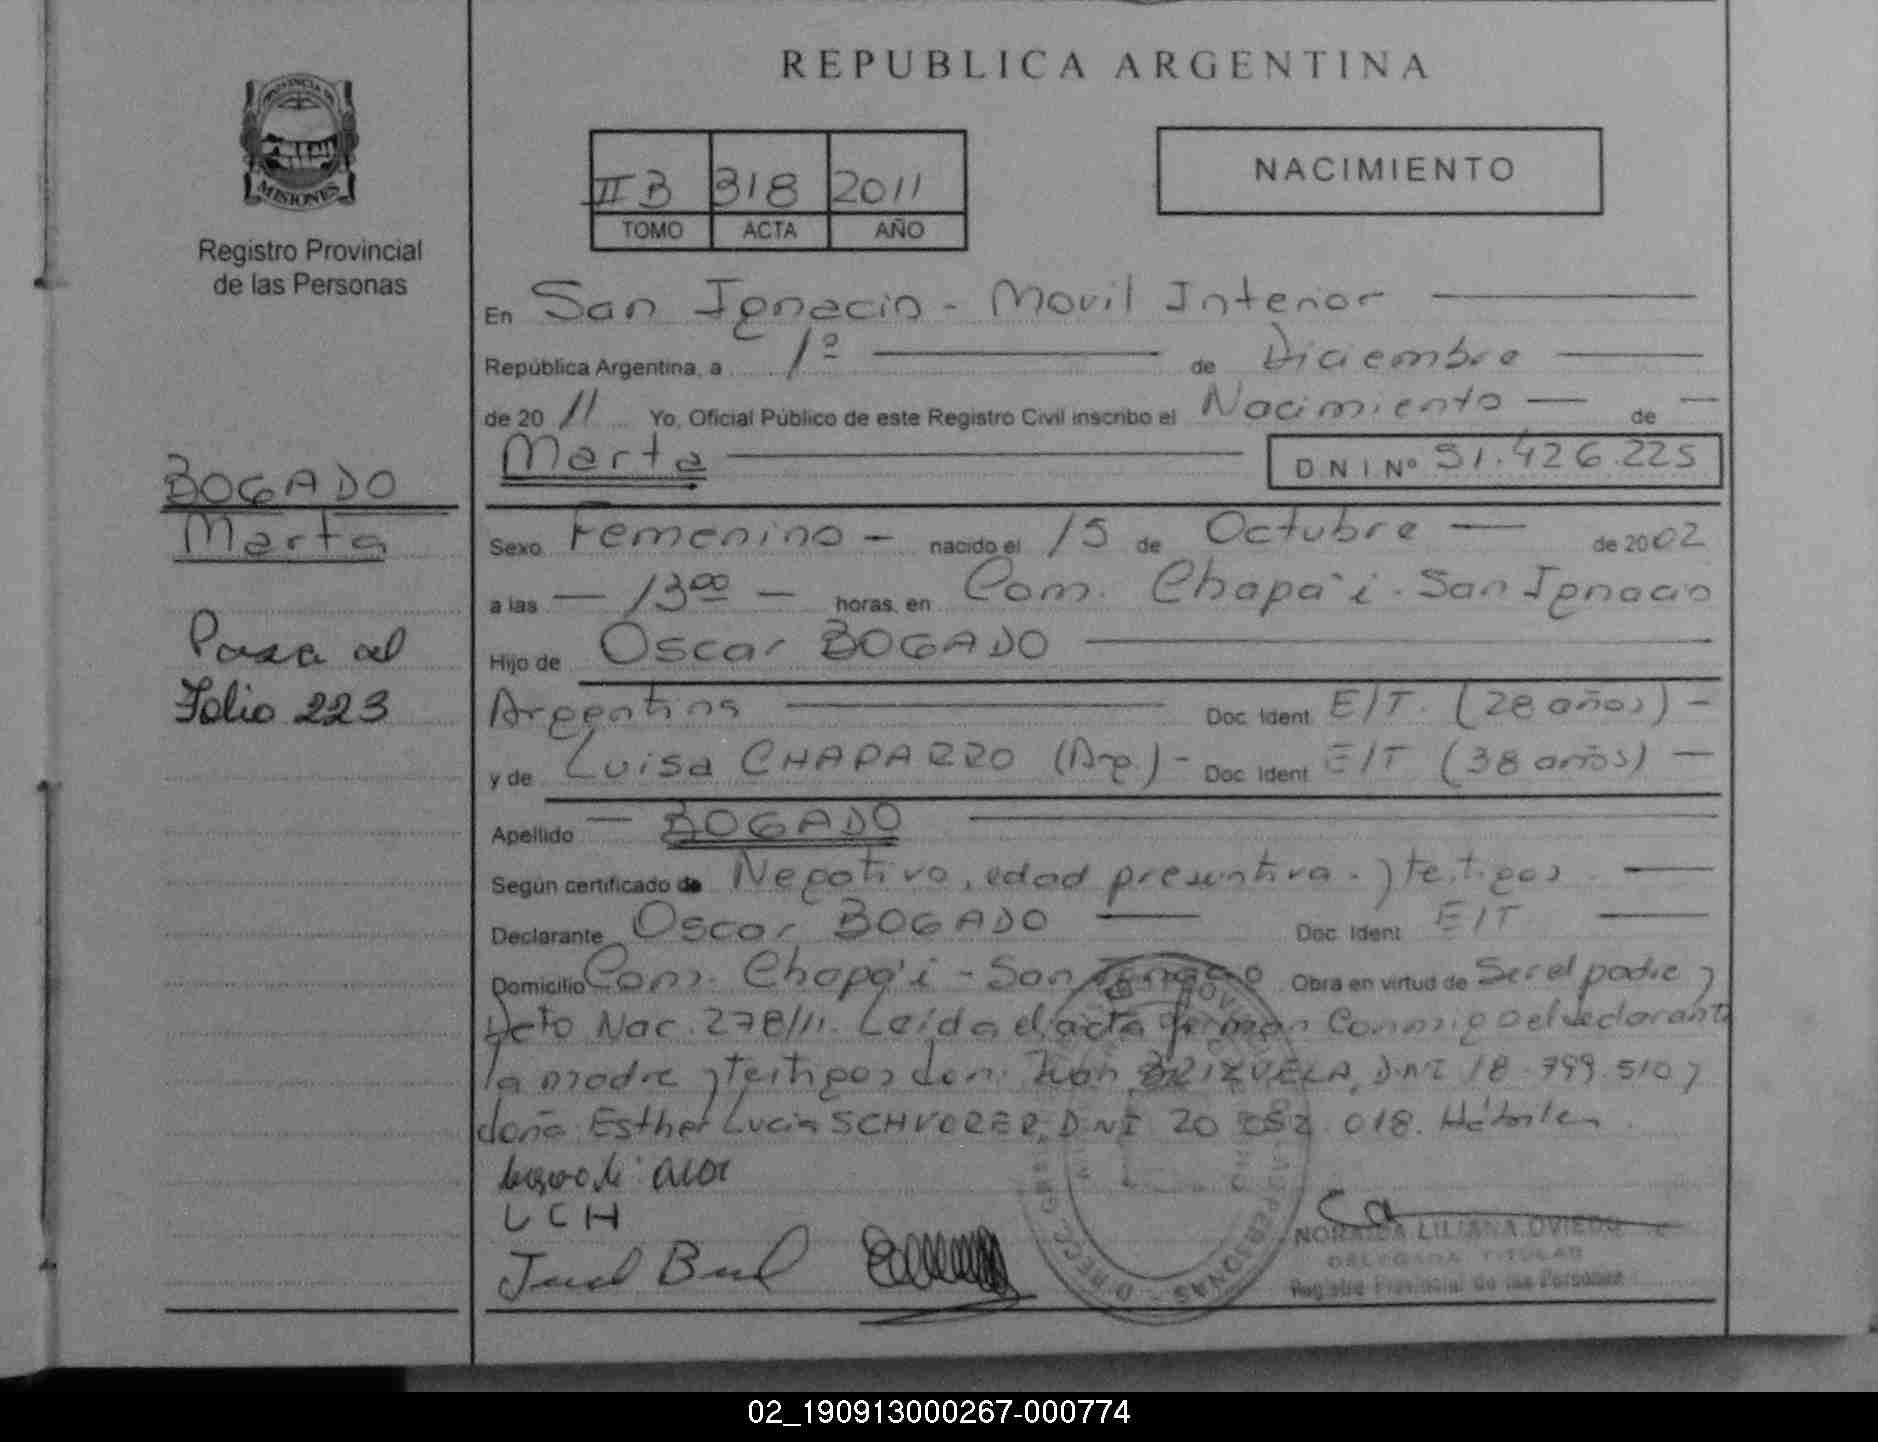 REPUBLICA ARGENTINA
PROVINCIA DE
MISIONES
Registro Provincial
de las Personas
II B 318 2011
TOMO ACTA AÑO
NACIMIENTO
En San Ignacio - Movil Interior
República Argentina, a 1º de Diciembre
de 20 11 Yo, Oficial Público de este Registro Civil inscribo el Nacimiento de
Marta D N I Nº 51.426.225
BOGADO
Marta
Pasa al
Folio 223
Sexo Femenino - nacido el 15 de Octubre de 2002
a las 13 00 horas, en Com. Chapa'i - San Ignacio
Hijo de Oscar BOGADO
Argentina Doc. Ident E/T. (28 años) -
y de Luisa CHAPARRO (Arg) - Doc. Ident E/T (38 años)
Apellido BOGADO
Según certificado de Negativo, edad presuntiva. y testigos
Declarante Oscar BOGADO Doc. Ident E/T
Domicilio Com. Chapa'i - San Ignacio Obra en virtud de Ser el padre y
Dcto Nac. 278/11. Leída el acta firman Conmigo el declarante
la madre y testigos don Juan BRIZUELA, DNI 18.799.510 y
doña Esther Lucia SCHVORER, DNI 20 052 018.
LCH
NORAIDA LILIANA OVIEDO
DELEGADA TITULAR
Registro Provincial de las Personas
02_190913000267-000774